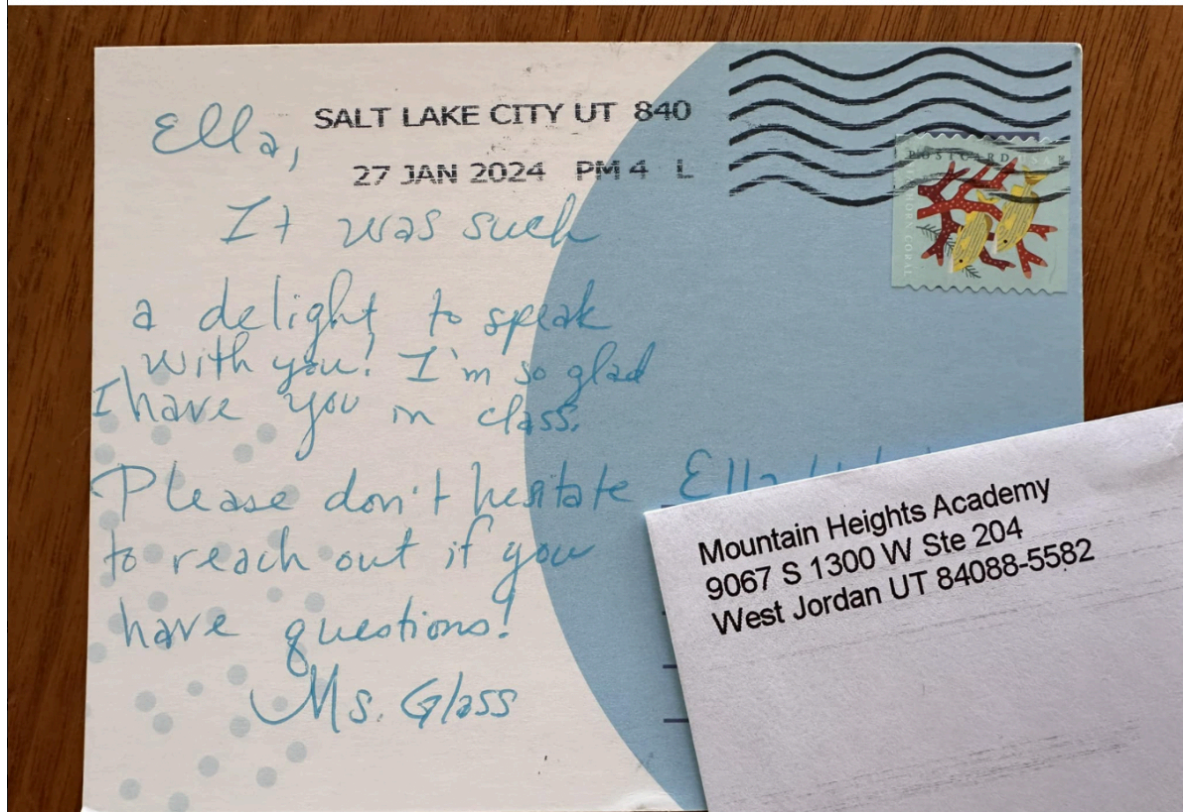 SALT LAKE CITY UT 840
27 JAN 2024 PM 4 L
POSTCARD USA
Ella,
It was such
a delight to speak
with you! I'm so glad
I have you in class.
Please don't hesitate
to reach out if you
have questions!
Ms. Glass
Ella
Mountain Heights Academy
9067 S 1300 W Ste 204
West Jordan UT 84088-5582